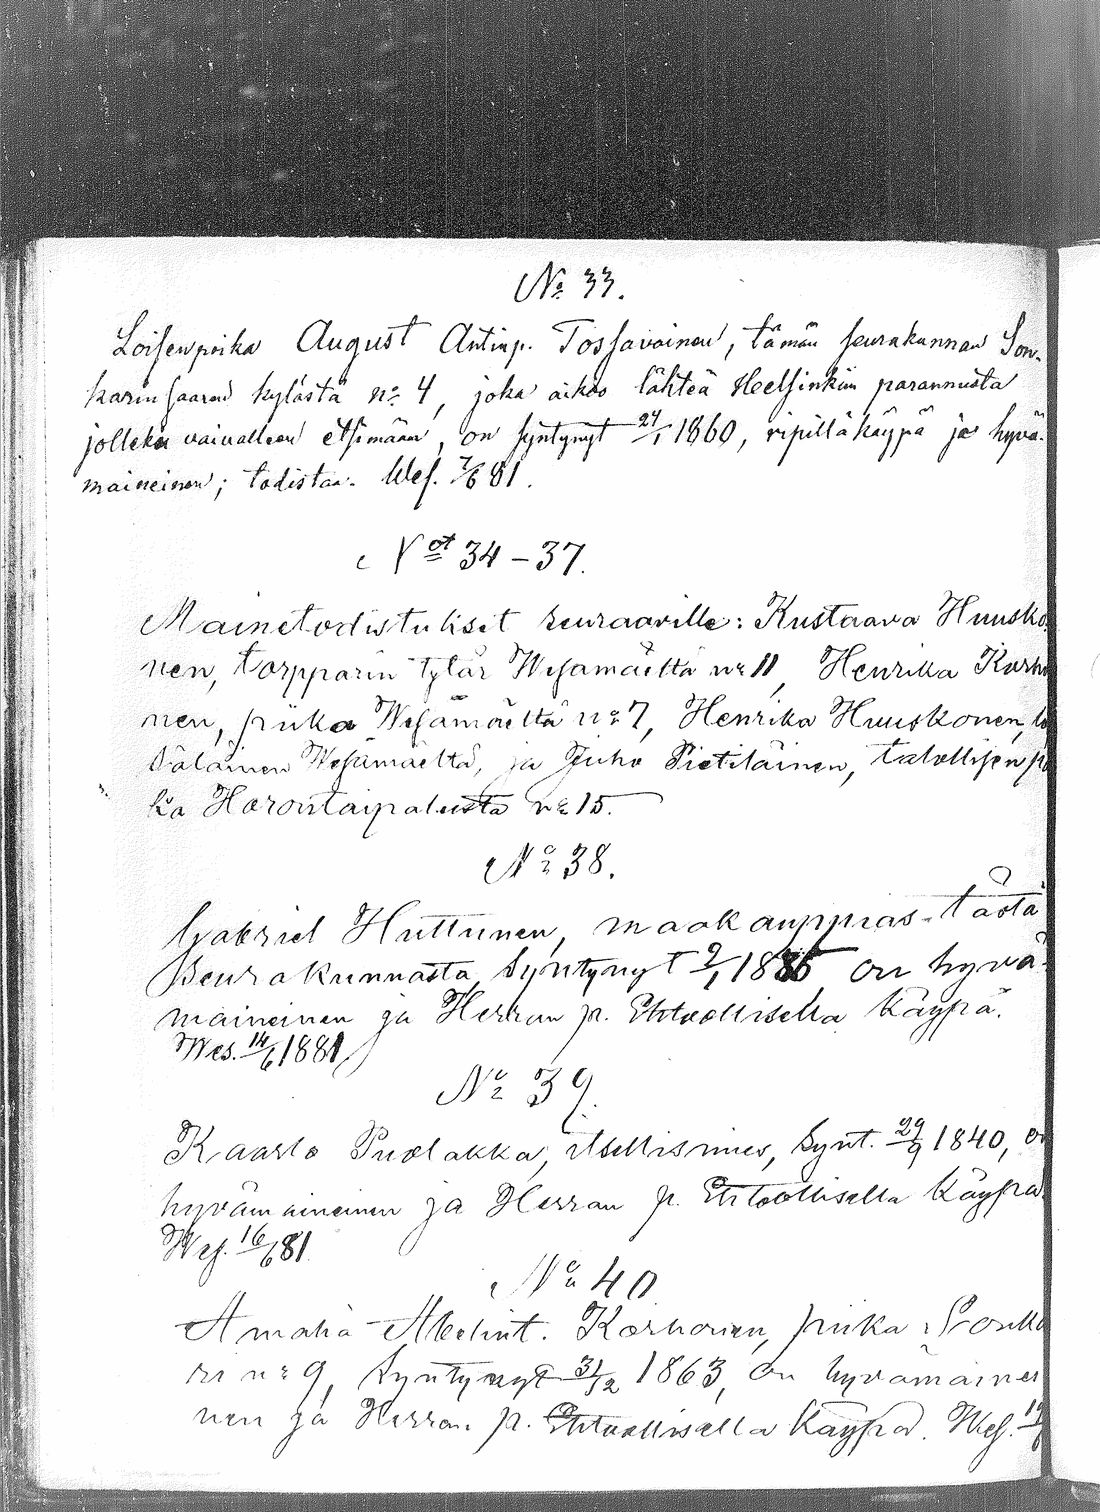 No 33.
Loisenpoika August Antinp. Tossavainen, tämän seurakunnan Son-
karinsaaren kylästä no 4, joka aikoo lähteä Helsinkiin parannusta
jollekin vaivalleen etsimään, on syntynyt 24/1 1860, ripillä käypä ja hyvä-
maineinen; todistaa. Wes. 7/6 81.
Not 34-37.
Mainetodistukset seuraaville: Kustaava Huusko-
nen, torpparin tytär Wesamäeltä no 11, Henrika Korho
nen, piika Wesamäeltä no 7, Henrika Huuskonen,
Wesamäeltä, ja Juho Pietiläinen, talollisen po
ka Horontaipaleesta no 15.
No 38.
Gabriel Huttunen, maakauppias tästä
Seurakunnasta, Syntynyt 2/1 on hyvä-
maineinen ja Herran p. Ehtoollisella käypä.
Wes. 14/6 1881
No 39.
Kaarlo Puolakka, itsellismies, Synt. 29/9 1840, on
hyvämaineinen ja Herran p. Ehtoollisella käypä
Wes. 16/6 81.
No 40
Amalia Korhonen, piika Sonka
ri no 9, Syntynyt 31/12 1863, on hyvämainei
nen ja Herran p. Ehtoollisella käypä. Wes.